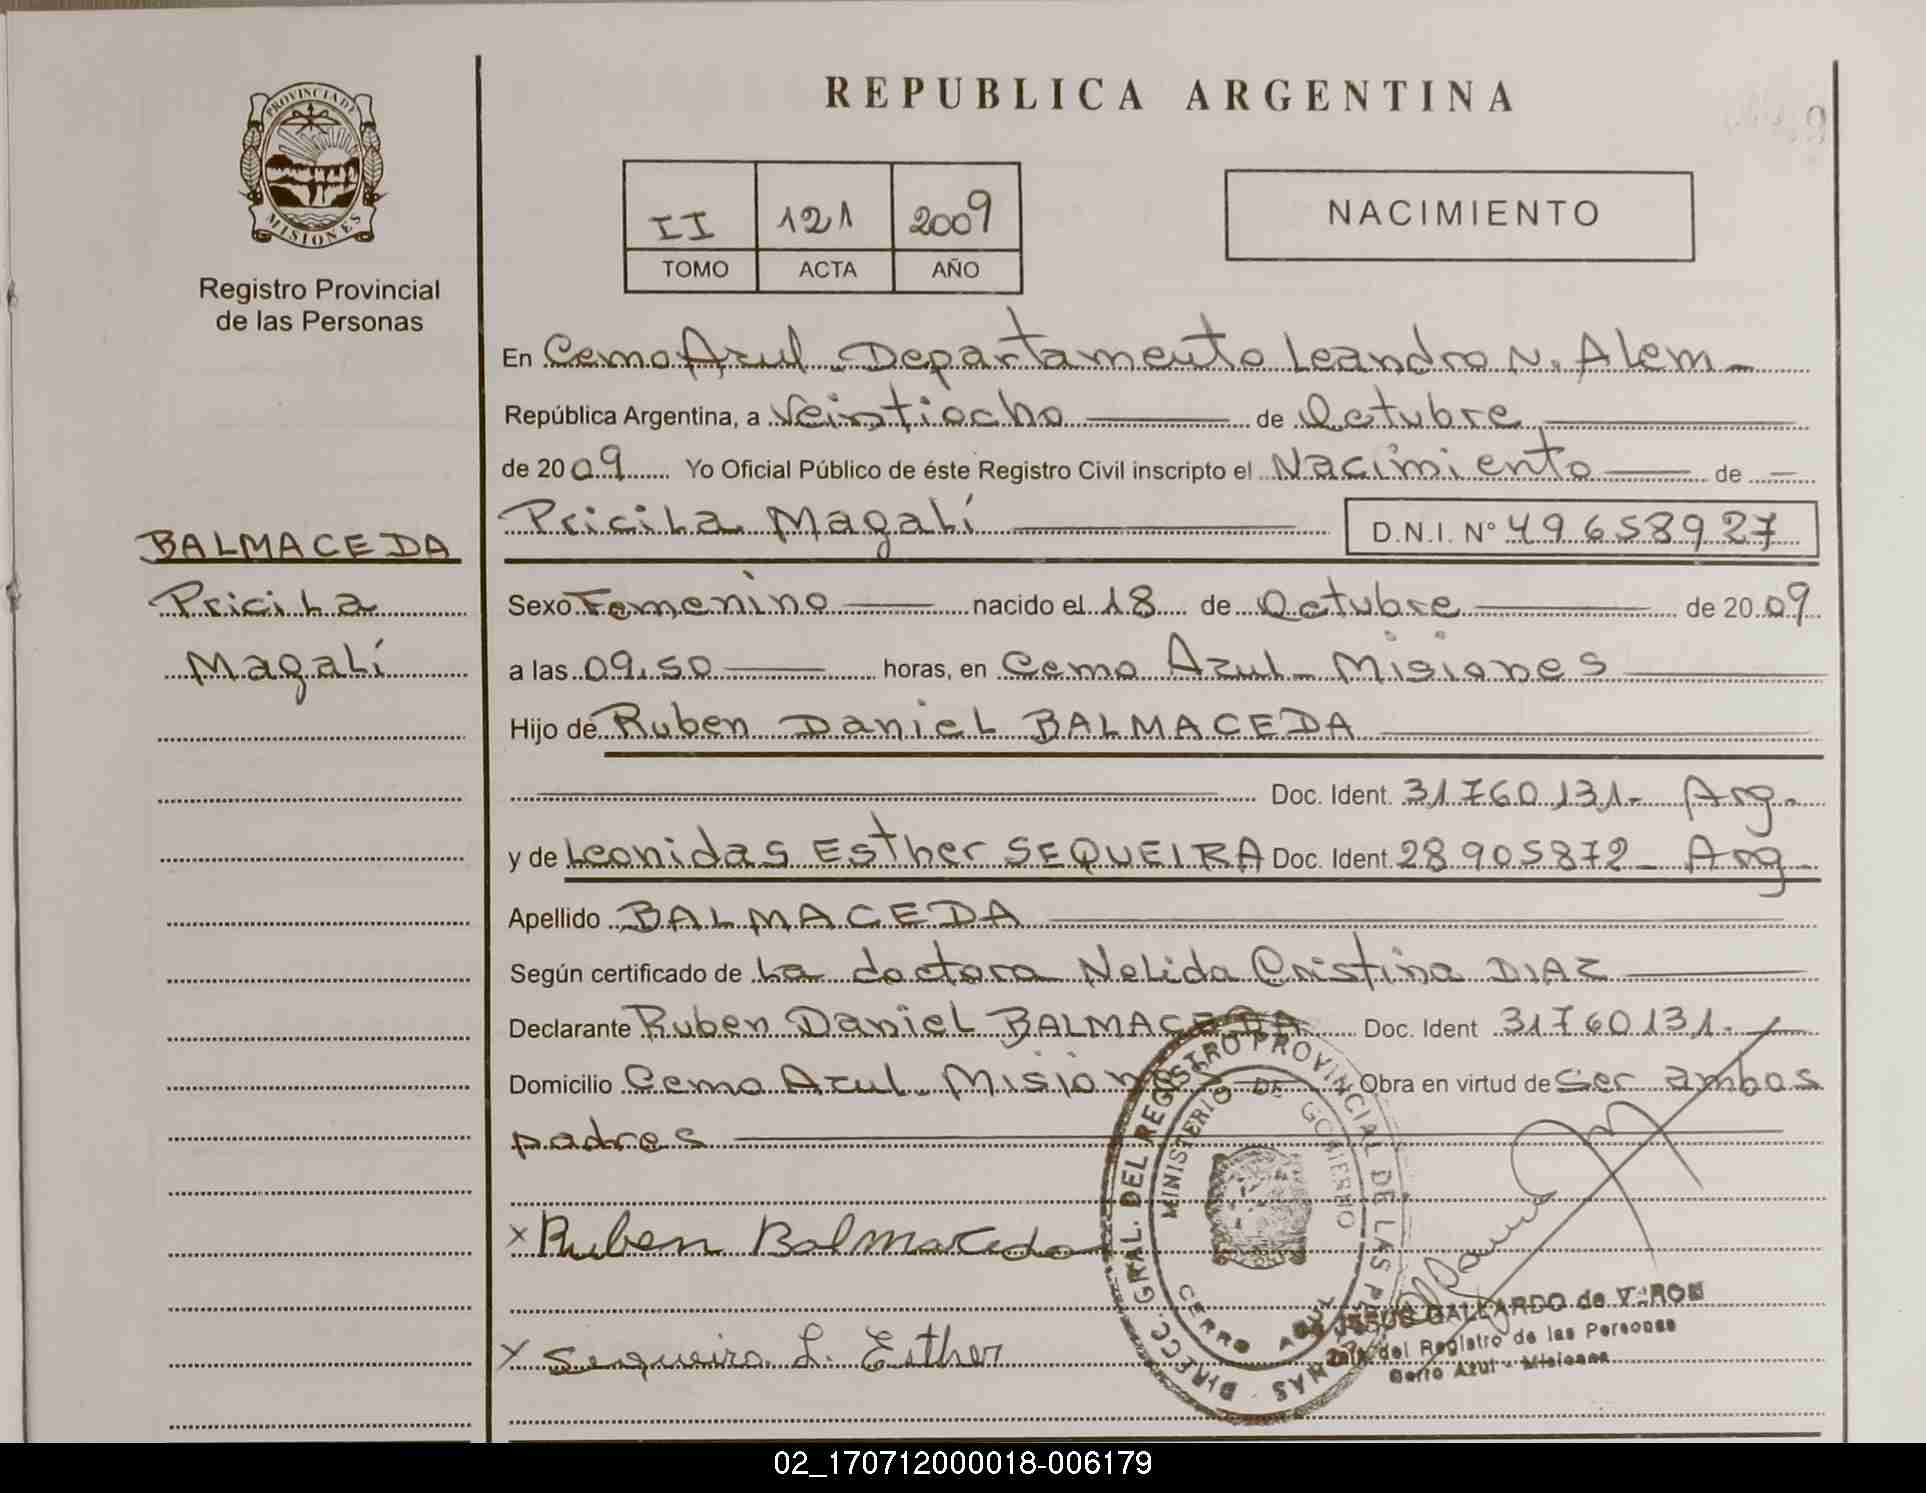 REPUBLICA ARGENTINA
PROVINCIA DE
MISIONES
Registro Provincial
de las Personas
II 121 2009
TOMO ACTA AÑO
NACIMIENTO
En Cerro Azul - Departamento Leandro N. Alem -
República Argentina, a Veintiocho de Octubre
de 2009 Yo Oficial Público de éste Registro Civil inscripto el Nacimiento de
Pricila Magalí D.N.I. Nº 49658927
BALMACEDA
Pricila
Magalí
Sexo Femenino nacido el 18 de Octubre de 2009
a las 09.50 horas, en Cerro Azul - Misiones
Hijo de Ruben Daniel BALMACEDA
Doc. Ident. 31760131- Arg.
y de Leonidas Esther SEQUEIRA Doc. Ident. 28905872- Arg
Apellido BALMACEDA
Según certificado de La doctora Nelida Cristina DIAZ
Declarante Ruben Daniel BALMACEDA Doc. Ident 31760131-
Domicilio Cerro Azul - Misiones Obra en virtud de Ser ambos
padres
x Ruben Balmaceda
x Sequeira L. Esther
DIRECC. GRAL. DEL REGISTRO PROVINCIAL DE LAS PERSONAS
MINISTERIO DE GOBIERNO
CERRO AZUL
JESUS GALLARDO de
del Registro de las Personas
Cerro Azul - Misiones
02_170712000018-006179